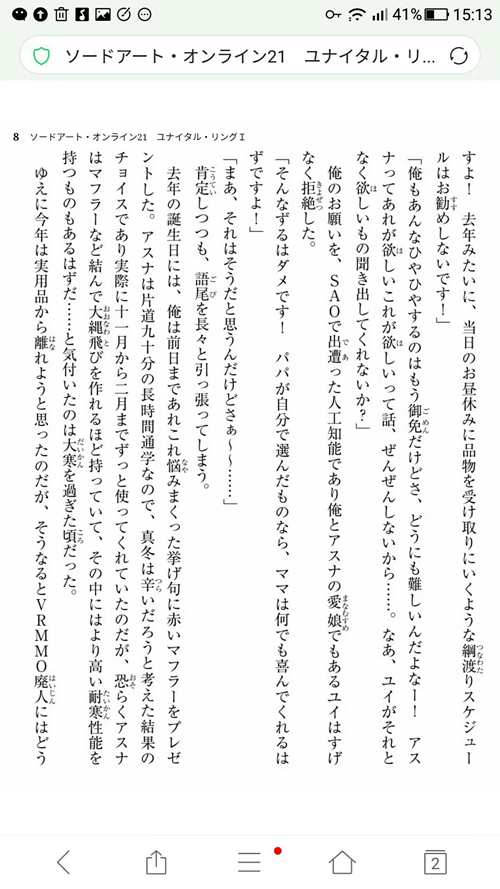 41% 15:13
ソードアート・オンライン21　ユナイタル・リ...
8 ソードアート・オンライン21　ユナイタル・リングⅠ
すよ！　去年みたいに、当日のお昼休みに品物を受け取りにいくような綱渡りスケジュー
ルはお勧めしないです！」
「俺もあんなひやひやするのはもう御免だけどさ、どうにも難しいんだよなー！　アス
ナってあれが欲しいこれが欲しいって話、ぜんぜんしないから……。なあ、ユイがそれと
なく欲しいもの聞き出してくれないか？」
　俺のお願いを、ＳＡＯで出遭った人工知能であり俺とアスナの愛娘でもあるユイはすげ
なく拒絶した。
「そんなずるはダメです！　パパが自分で選んだものなら、ママは何でも喜んでくれるは
ずですよ！」
「まあ、それはそうだと思うんだけどさぁ～～……」
　肯定しつつも、語尾を長々と引っ張ってしまう。
　去年の誕生日には、俺は前日まであれこれ悩みまくった挙げ句に赤いマフラーをプレゼ
ントした。アスナは片道九十分の長時間通学なので、真冬は辛いだろうと考えた結果の
チョイスであり実際に十一月から二月までずっと使ってくれていたのだが、恐らくアスナ
はマフラーなど結んで大縄飛びを作れるほど持っていて、その中にはより高い耐寒性能を
持つものもあるはずだ……と気付いたのは大寒を過ぎた頃だった。
　ゆえに今年は実用品から離れようと思ったのだが、そうなるとＶＲＭＭＯ廃人にはどう
2